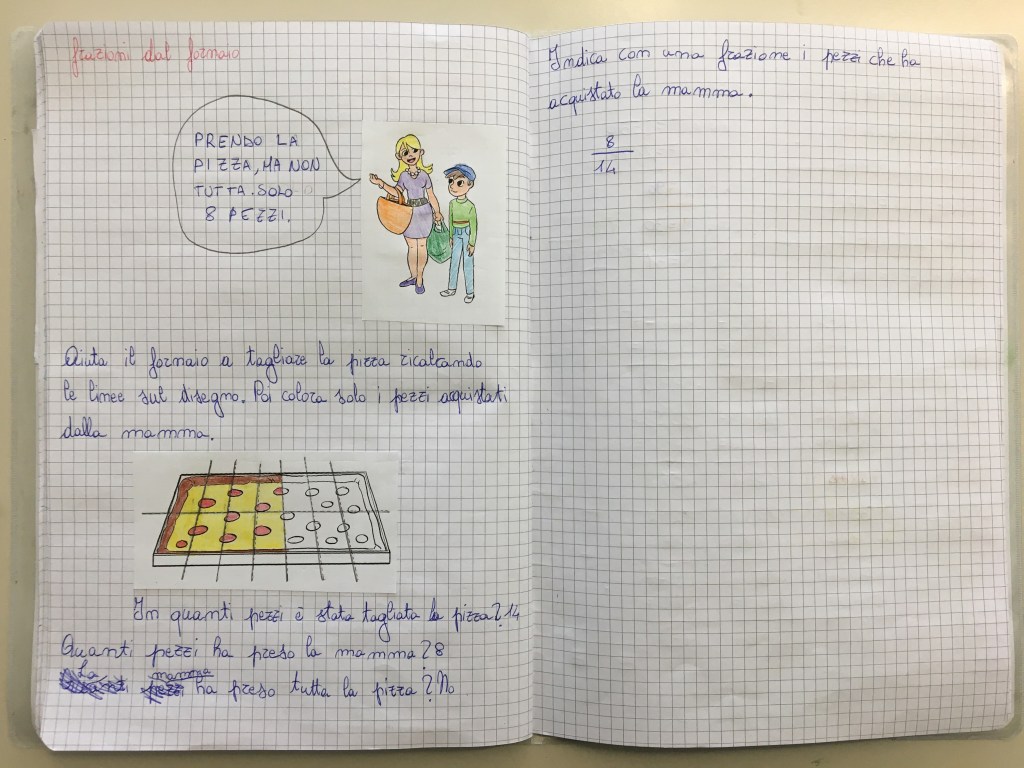 frazioni dal fornaio
PRENDO LA
PIZZA, MA NON
TUTTA. SOLO
8 PEZZI.
Aiuta il fornaio a tagliare la pizza ricalcando
le linee sul disegno. Poi colora solo i pezzi acquistati
dalla mamma.
In quanti pezzi è stata tagliata la pizza? 14
Quanti pezzi ha preso la mamma? 8
La mamma ha preso tutta la pizza? No
Indica con una frazione i pezzi che ha
acquistato la mamma.
8
14